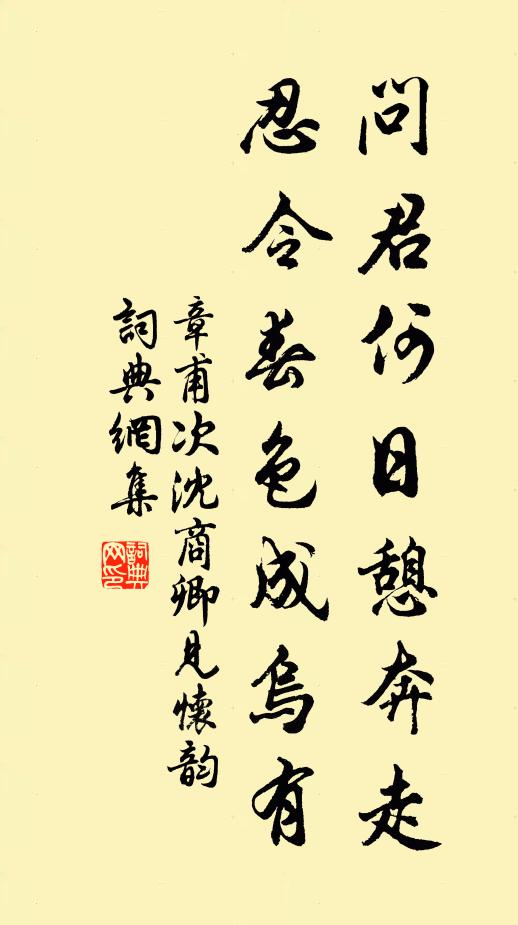 問君何日憩奔走
忍令春色成烏有
章甫次沈商卿見懷韵
詞典網集
詞典
网印